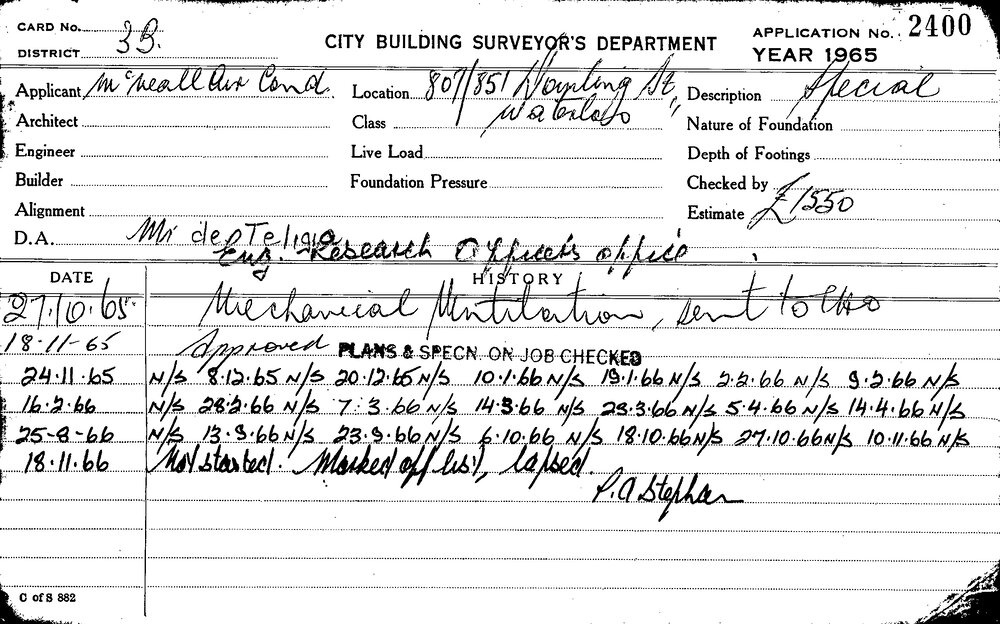 CARD No.
DISTRICT 3B.
CITY BUILDING SURVEYOR'S DEPARTMENT
APPLICATION No. 2400
YEAR 1965
Applicant McNeall Air Cond.
Location 807/851 St,
Waterloo
Description Special
Architect
Class
Nature of Foundation
Engineer
Live Load
Depth of Footings
Builder
Foundation Pressure
Checked by
Alignment
Estimate £1550
D.A. Mr
Eng. Research Officer's office
DATE HISTORY
27.10.65 Mechanical Ventilation, sent to
18.11-65 Approved PLANS & SPECN. ON JOB CHECKED
24.11.65 N/S 8.12.65 N/S 20.12.65 N/S 10.1.66 N/S 19.1.66 N/S 2.2.66 N/S 9.2.66 N/S
16.2.66 N/S 28.2.66 N/S 7.3.66 N/S 14.3.66 N/S 23.3.66 N/S 5.4.66 N/S 14.4.66 N/S
25-8-66 N/S 13.9.66 N/S 23.9.66 N/S 6.10.66 N/S 18.10.66 N/S 27.10.66 N/S 10.11.66 N/S
18.11.66 Not started. Marked off list, lapsed.
P.A Stephan
C of S 882